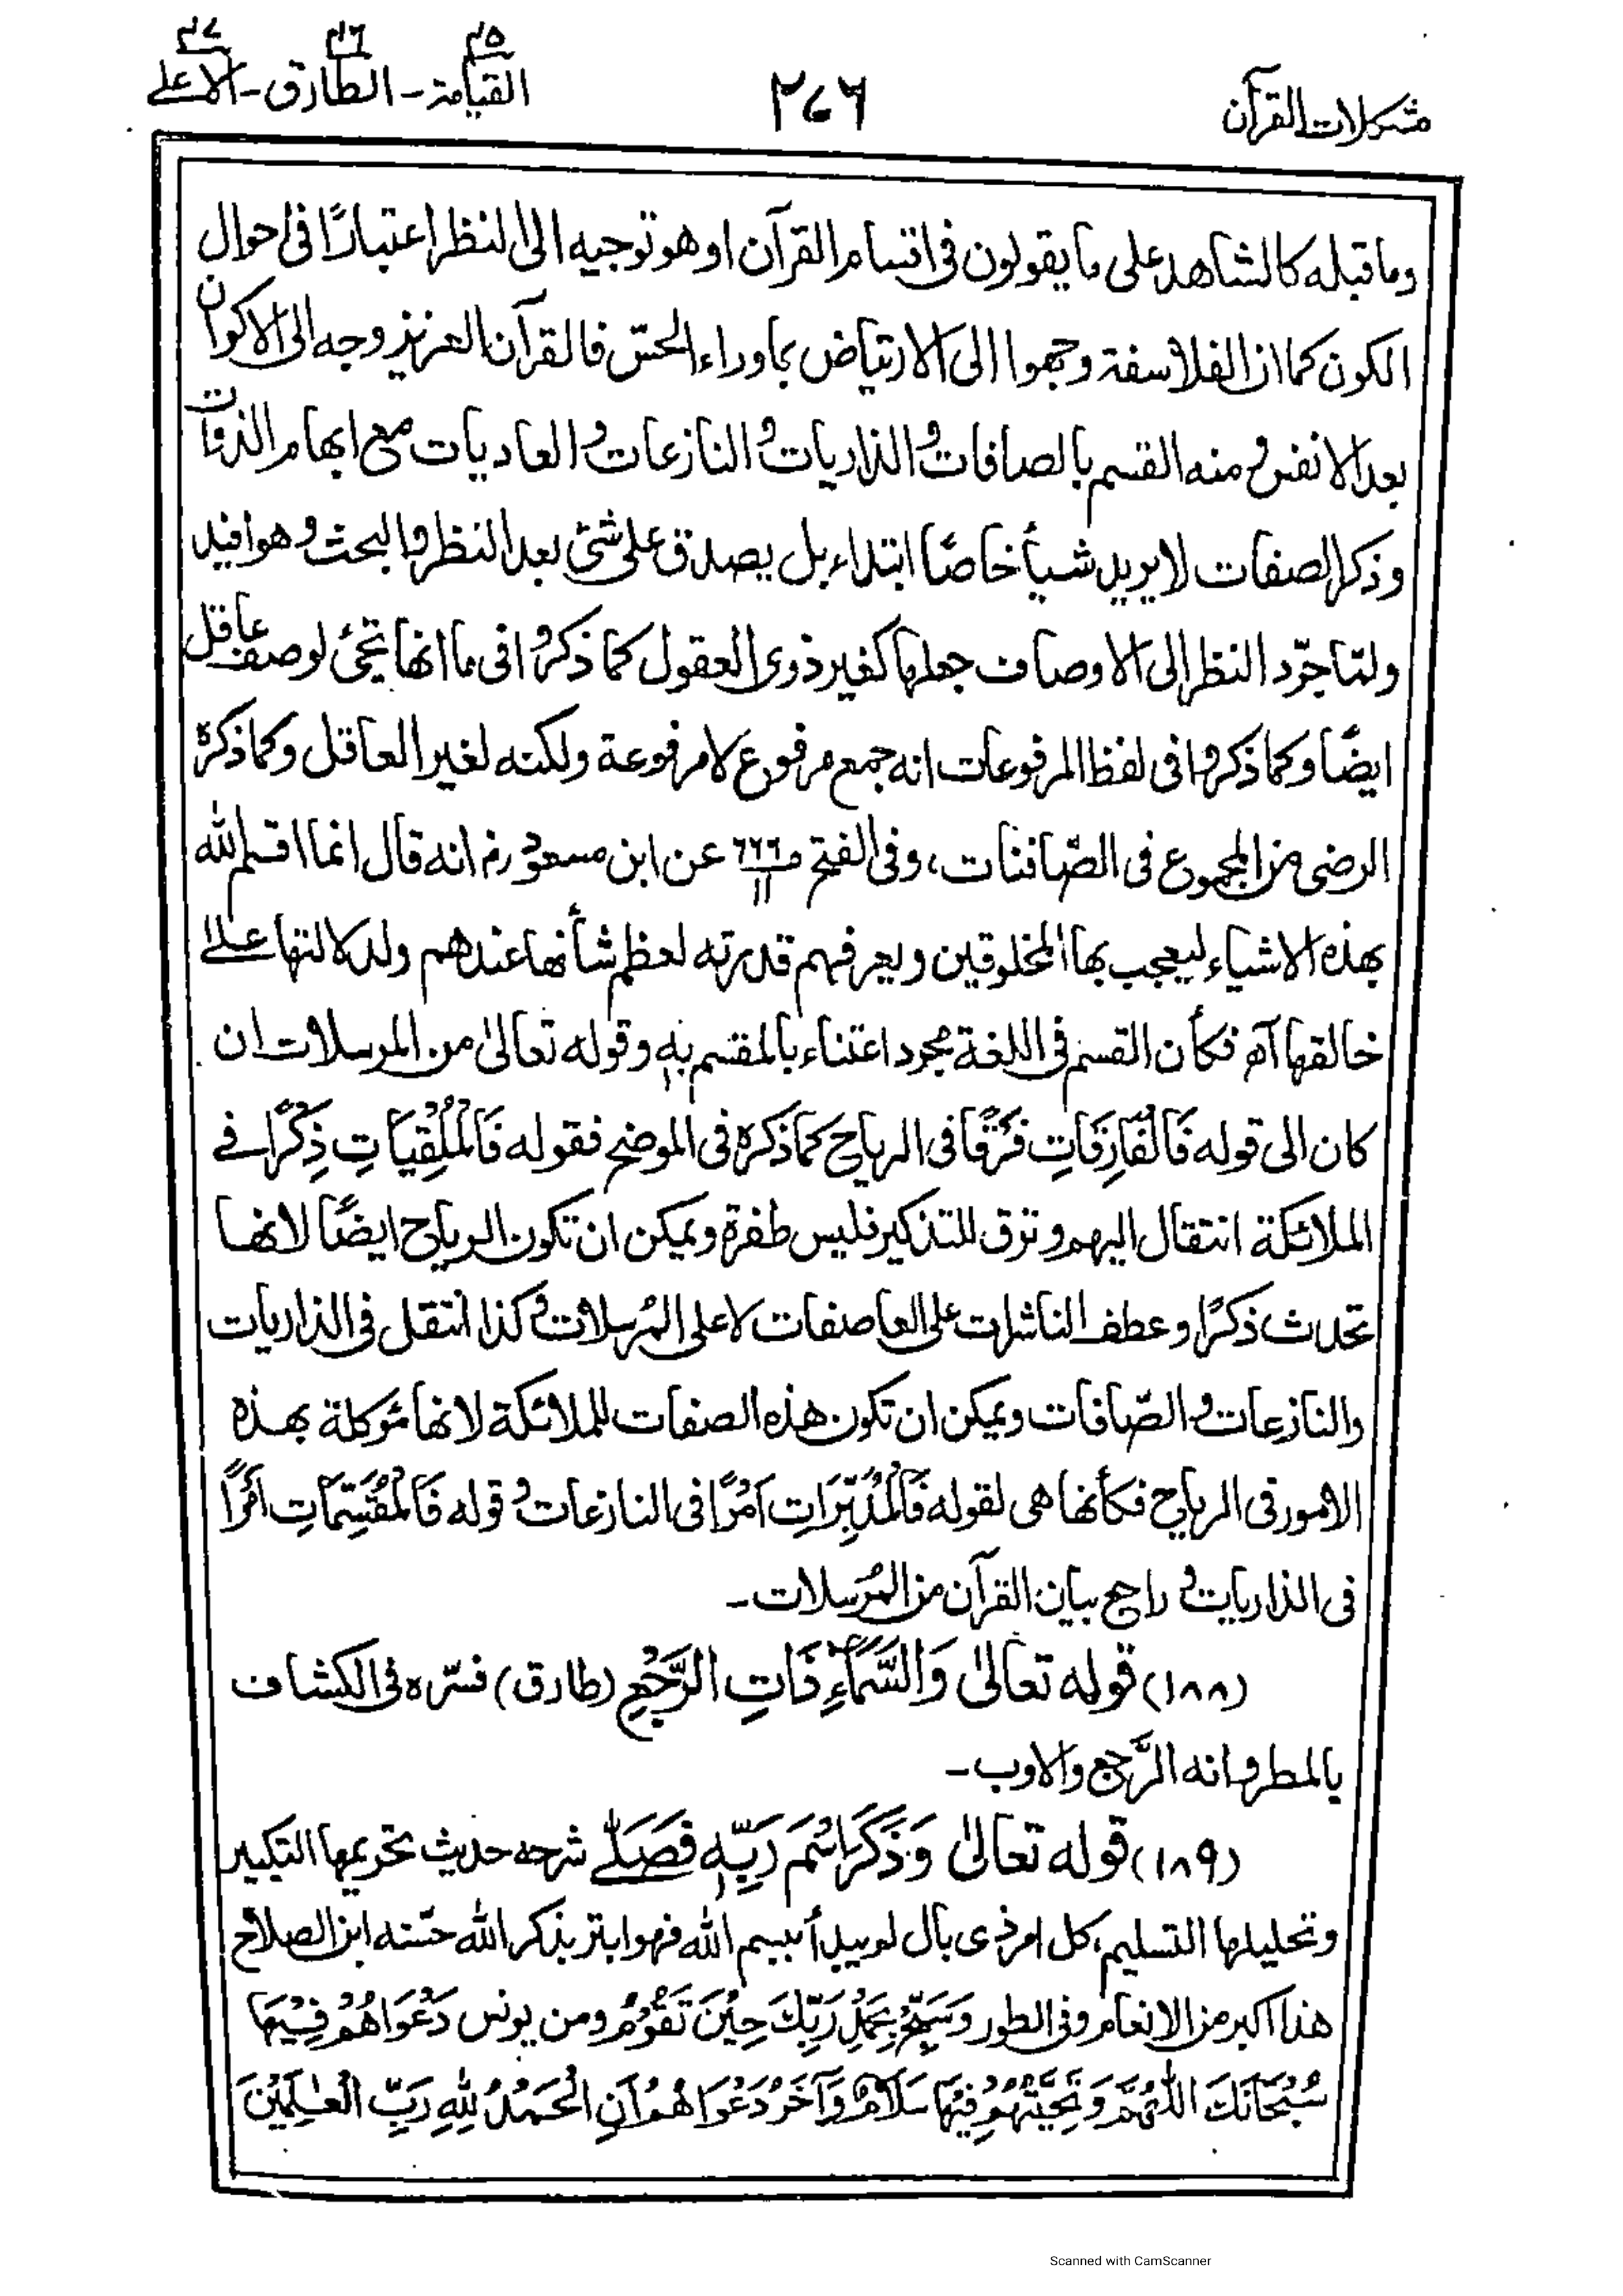 مشكلات القرآن ٢٧٦ القيامة - الطارق - الاعلى
وما قبله كالشاهد على ما يقولون فى اقسام القرآن او هو توجيه الى النظر اعتبارًا فى احوال
الكون كما ان الفلاسفة وجهوا الى الارتياض بماوراء الحسّ فالقرآن العزيز وجه الى الاكوان
بعد الانفس ومنه القسم بالصافات والذاريات والنازعات والعاديات مع ابهام الذوات
وذكر الصفات لا يريد شيأ خاصًّا ابتداء بل يصدق على شئ بعد النظر والبحث وهو افيد
ولمّا جرّد النظر الى الاوصاف جعلها كغير ذوى العقول كما ذكروا فى ما انها تجئ لوصف عاقل
ايضًا وكما ذكروا فى لفظ المرفوعات انه جمع مرفوع لا مرفوعة ولكنه لغير العاقل وكما ذكره
الرضى من المجموع فى الصّافنات، وفى الفتح عن ابن مسعود رض انه قال انما اقسم الله
بهذه الاشياء ليعجب بها المخلوقين ويعرفهم قدرته لعظم شأنها عندهم ولدلالتها على
خالقها آه فكأن القسم فى اللغة مجرد اعتناء بالمقسم به وقوله تعالىٰ من المرسلات ان
كان الى قوله فَالْفَارِقَاتِ فَرْقًا فى الرياح كما ذكره فى الموضح فقوله فَالْمُلْقِيَاتِ ذِكْرًا فے
الملائكة انتقال اليهم وترق للتذكير فليس طفرة ويمكن ان تكون الرياح ايضًا لانها
تحدث ذكرًا وعطف الناشرات على العاصفات لا على المُرسلات وكذا انتقل فى الذاريات
والنازعات والصّافات ويمكن ان تكون هذه الصفات للملائكة لانها مؤكلة بهذه
الامور فى الرياح فكأنها هى لقوله فَالْمُدَبِّرَاتِ اَمْرًا فى النازعات وقوله فَالْمُقَسِّمَاتِ اَمْرًا
فى الذاريات وراجع بيان القرآن من المُرسلات -
(١٨٨) قوله تعالىٰ وَالسَّمَآءِ ذَاتِ الرَّجْعِ (طارق) فسّره فى الكشاف
بالمطر وانه الرَّجع والاوب -
(١٨٩) قوله تعالىٰ وَذَكَرَ اسْمَ رَبِّهٖ فَصَلّٰے شرحه حديث تحريمها التكبير
وتحليلها التسليم، كل امر ذى بال لم يبدأ ببسم الله فهو ابتر بذكر الله حسّنه ابن الصلاح
هذا اكبر من الانعام وفى الطور وَسَبِّحْ بِحَمْدِ رَبِّكَ حِيْنَ تَقُوْمُ ومن يونس دَعْوَاهُمْ فِيْهَا
سُبْحَانَكَ اللّٰهُمَّ وَتَحِيَّتُهُمْ فِيْهَا سَلَامٌ وَآخِرُ دَعْوَاهُمْ اَنِ الْحَمْدُ لِلّٰهِ رَبِّ الْعٰلَمِيْنَ
Scanned with CamScanner